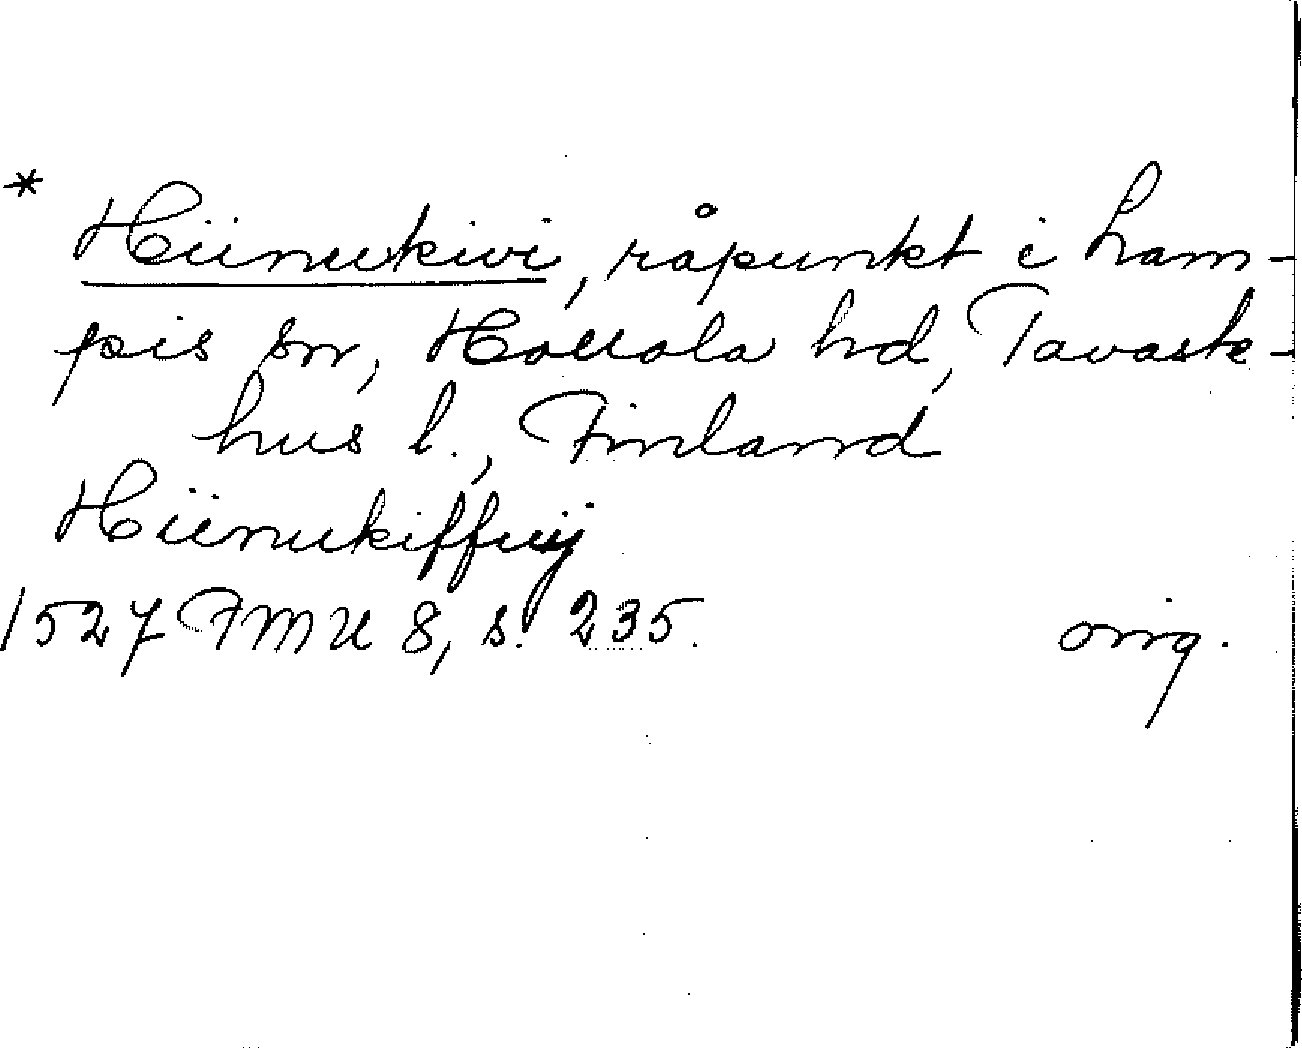 * Hiinukivi, råpunkt i Lam-
pis sn, Hollola hd, Tavaste-
hus l., Finland
Hiinukiffuij
1527 FMU 8, s. 235. orig.